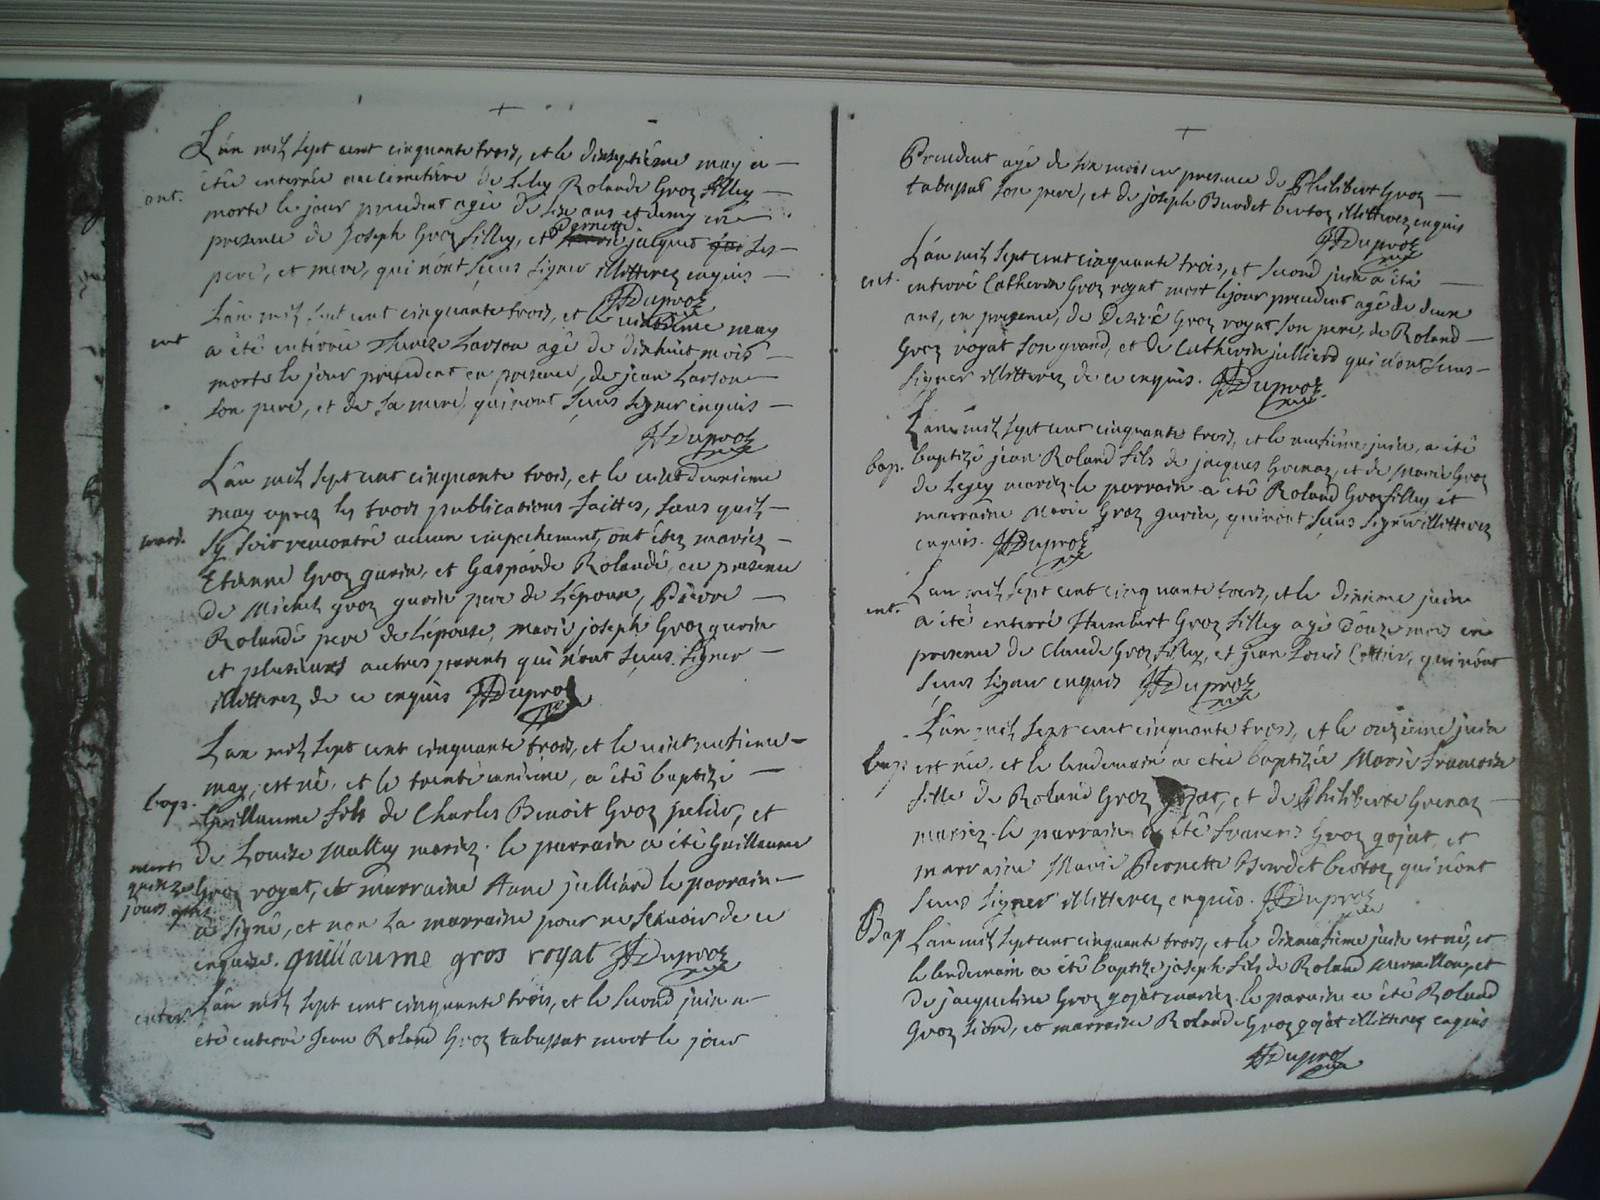 L'an mil sept cent cinquante trois, et le dixseptième may a
ent. êtée enterrée au cimetière de Leley Rolande Groz filley
morte le jour precedent agée de six ans et demy en
presence de Joseph Groz filley, et Pernette jacquet ses
pere, et mere, qui n'ont sçeus signer illitterez enquis
JfDuproz
L'an mil sept cent cinquante trois, et le may
ent a été entérrée Therese Larson agé de dixhuit mois
morte le jour précédent en présence, de jean Larson
son pere, et de sa mere, qui n'ont sçeus signer enquis
JfDuproz
L'an mil sept cent cinquante trois, et le vint deuxieme
may apres les trois publications faittes, sans quil
mari. sy soit rencontré aucun empechement, ont étez mariez
Etienne Groz gurin, et Gasparde Rolandé, en presence
de Michel groz gurin pere de l'époux, Pierre
Rolandé pere de l'épouse, marie joseph Groz gurin
et plusieurs autres parents qui n'ont sçeus signer
illitterez de ce enquis JfDuproz
L'an mil sept cent cinquante trois, et le vint neufieme
may, est né, et le trentè unième, a été baptizé
bap. Guillaume fils de Charles Benoit Groz pelin, et
de Louise Mallley mariez. le parrain a été Guillaume
mort
quinze Groz royat, et marraine Anne julliard le parrain
jours après a signé, et non la marraine pour ne sçavoir de ce
enquise. guillaume gros royat JfDuproz
enter. L'an mil sept cent cinquante trois, et le second juin a
été enterré Jean Roland Groz tabussat mort le jour
Precedent agé de six mois en presence de Philibert Groz
tabussat son pere, et de joseph Burdet bertoz illitterez enquis
JfDuproz
L'an mil sept cent cinquante trois, et second juin a été
ent. enterré Catherin Groz royat mort le jour precedent agé de deux
ans, en presence, de Desiré Groz royat son pere, de Roland
Groz royat son grand, et de Catherin julliard qui n'ont sçeus
signer illitterez de ce enquis. JfDuproz
L'an mil sept cent cinquante trois, et le neufième juin, a été
bap. baptizé jean Roland fils de jacques Grenaz, et de Marie Groz
de Legey mariez. le parrain a été Roland Groz filley et
marraine Marie Groz gurin, qui n'ont sçeus signer illitterez
enquis. JfDuproz
L'an mil sept cent cinquante trois, et le dixieme juin
ent. a été enterré Humbert Groz filley agé d'onze mois en
presence de Claude Groz filley, et jean Louis Cottier, qui n'ont
sçeus signer enquis JfDuproz
L'an mil sept cent cinquante trois, et le onzième juin
bap. est née, et le lendemain a été baptizée Marie Francoise
fille de Roland Groz gojat, et de Philiberte Grenaz
mariez. le parrain a été francois Groz gojat, et
marraine Marie Pernette Burdet bertoz, qui n'ont
sçeus signer illitterez enquis. JfDuproz
Bap L'an mil sept cent cinquante trois, et le dixneufième juin est né, et
le lendemain a été baptizé joseph fils de Roland Mermillon, et
de jacqueline Groz gojat mariez. le parain a été Roland
Groz , et marraine Rolande Groz gojat illitterez enquis
JfDuproz